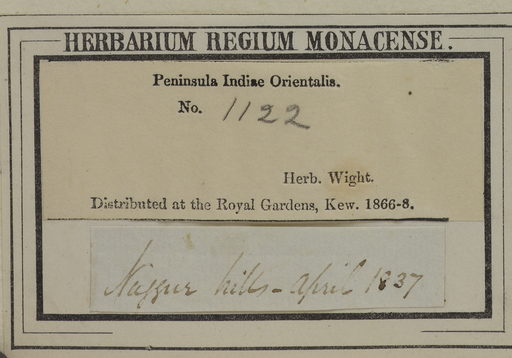 HERBARIUM REGIUM MONACENSE.
Peninsula Indiae Orientalis.
No. 1122
Herb. Wight.
Distributed at the Royal Gardens, Kew. 1866-8.
Naggur hills - April 1837